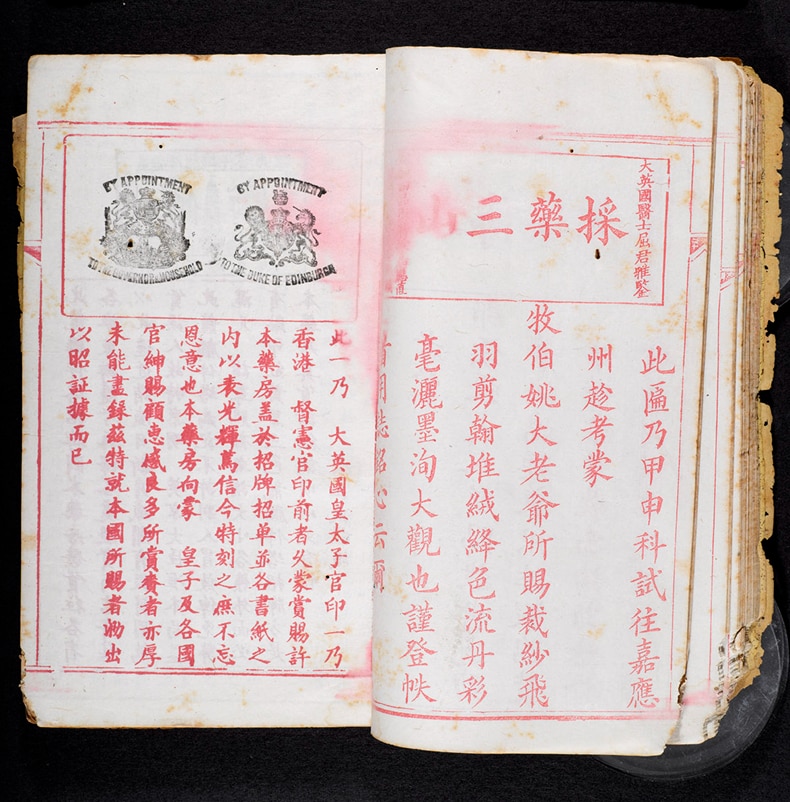 大英國醫士屈君雅鑒
採藥三山
此匾乃甲申科試往嘉應
州趁考蒙
牧伯姚大老爺所賜裁紗飛
羽剪翰堆絨絳色流丹彩
毫灑墨洵大觀也謹登帙
用誌銘心云爾
BY APPOINTMENT
TO THE GOVERNOR & HOUSEHOLD
BY APPOINTMENT
TO THE DUKE OF EDINBURGH
此一乃 大英國皇太子官印一乃
香港 督憲官印前者久蒙賞賜許
本藥房蓋於招牌招单並各書紙之
内以表光輝信今特刻之庶不忘
恩意也本藥房向蒙 皇子及各國
官紳賜顧惠感良多所賞賚者亦厚
未能盡錄兹特就本國所賜者出
以昭証據而已